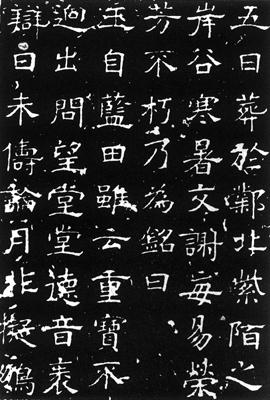 五日葬於鄴北紫陌之
岸谷寒暑交謝每易榮
芳不朽乃為銘曰
玉自藍田雖云重寶不
迥出問望堂堂德音
辯日未儔論月非擬